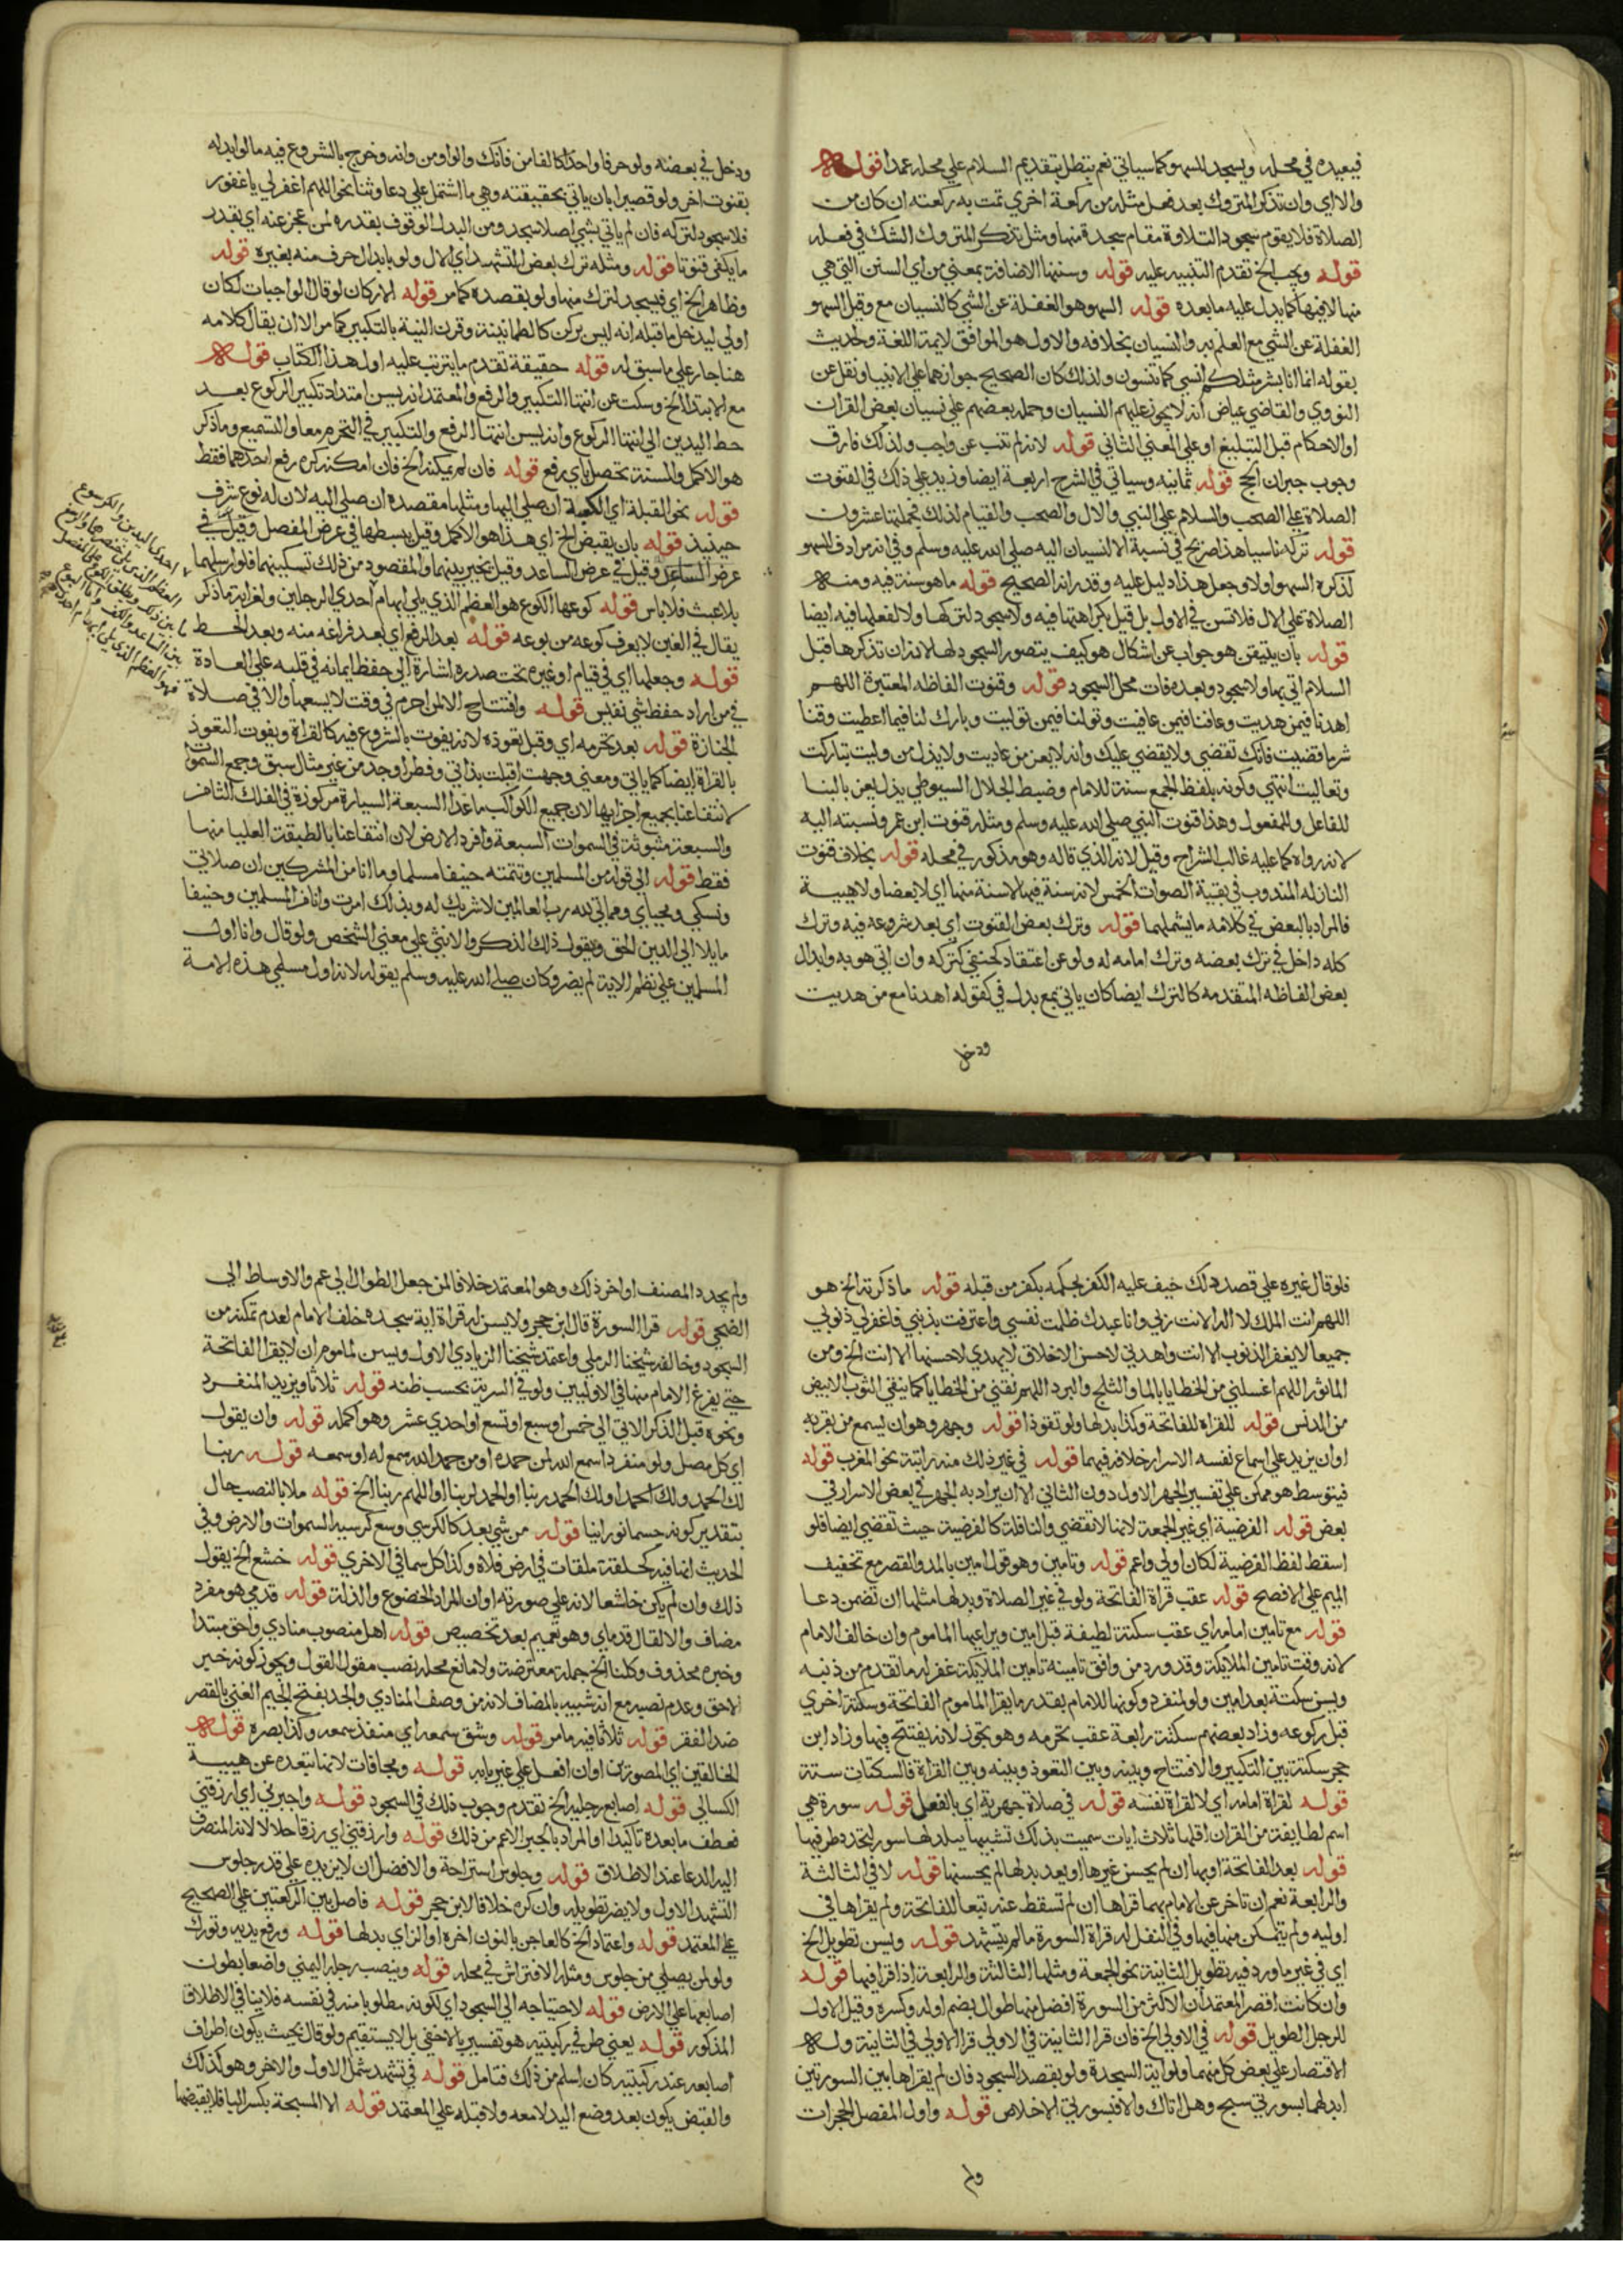 فيعيده في محله ويسجد للسهو كما سياتي نعم يبطل بتقديم السلام علي محله عمدا قوله
والا اي وان تذكر المتروك بعد فعل مثله من ركعة اخري تمت به ركعته ان كان من
الصلاة فلا يقوم سجود التلاوة مقام سجدة منها ومثل تذكر المتروك الشك في فعله
قوله ويجب الخ تقدم التنبيه عليه قوله وسننها الاضافة بمعني من اي السنن التي هي
منها لا فيها كما يدل عليه ما بعده قوله السهو هو الغفلة عن الشي كالنسيان مع وقيل السهو
الغفلة عن الشي مع العلم به والنسيان بخلافه والاول هو الموافق لايمة اللغة ولحديث
بقوله انما انا بشر مثلكم انسي كما تنسون ولذلك كان الصحيح جوازهما علي الانبيا ونقل عن
النووي والقاضي عياض انه لا يجوز عليهم النسيان وحمله بعضهم علي نسيان بعض القران
او الاحكام قبل التبليغ او علي المعني الثاني قوله لانه لم تنب عن واجب ولذلك فارق
وجوب جبران الحج قوله ثمانيه وسياتي في الشرح اربعة ايضا وزيد علي ذلك في القنوت
الصلاة علي الصحب والسلام علي النبي والال والصحب والقيام لذلك فجملتها عشرون
قوله تركه ناسيا هذا صريح في نسبة الا لنسيان اليه صلي الله عليه وسلم وفي انه مرادف للسهو
لذكره السهو اولا وجعل هذا دليل عليه وقد مر انه الصحيح قوله ما هو سنة فيه ومنه
الصلاة علي الال فلا تسن في الاول بل قيل بكراهتها فيه ولا سجود لتركها ولا لفعلها فيه ايضا
قوله بان يتيقن هو جواب عن اشكال هو كيف يتصور السجود لها لانه ان تذكرها قبل
السلام اتي بها ولا سجود وبعده فات محل السجود قوله وقنوت الفاظه المعتبرة اللهم
اهدنا فيمن هديت وعافنا فيمن عافيت وتولنا فيمن توليت وبارك لنا فيما اعطيت وقنا
شر ما قضيت فانك تقضي ولا يقضي عليك وانه لا يعز من عاديت ولا يذل من وليت تباركت
وتعاليت انتهي وكونه بلفظ الجمع سنة للامام وضبط الجلال السيوطي يذل يعز بالبنا
للفاعل وللمفعول وهذا قنوت النبي صلي الله عليه وسلم ومثله قنوت ابن عمر ونسبته اليه
لانه رواه كما عليه غالب الشراح وقيل لانه الذي قاله وهو مذكور في محله قوله بخلاف قنوت
النازله المندوب في بقية الصلوات الخمس لانه سنة فيها لا سنة منها اي لا بعضا ولا هيية
فالمراد بالبعض في كلامه ما يشملهما قوله وترك بعض القنوت اي بعد شروعه فيه وترك
كله داخل في ترك بعضه وترك امامه له ولو عن اعتقاد كحنفي كتركه وان اتي هو به وابدال
بعض الفاظه المتقدمه كالترك ايضا كان ياتي بمع بدل في كقوله اهدنا مع من هديت
ودخل
ودخل في بعضه ولو حرفا واحدا كالفا من فانك والواو من وانه وخرج بالشروع فيه ما لو ابدله
بقنوت اخر ولو قصيرا بان ياتي بحقيقته وهي ما اشتمل علي دعا وثنا نحو اللهم اغفر لي يا غفور
فلا سجود لتركه فان لم ياتي بشي اصلا سجد ومن البدل الوقوف بقدره لمن عجز عنه اي بقدر
ما يكفي قنوتا قوله ومثله ترك بعض التشهد اي الال ولو بابدال حرف منه بغيره قوله
وظاهر الخ اي فيسجد لترك منها ولو بقصده كما مر قوله الاركان لو قال الواجبات لكان
اولي ليدخل ما قبله انه ليس بركن كالطمانينة وقرن النية بالتكبير كما مر الا ان يقال كلامه
هنا جار علي ما سبق له قوله حقيقة تقدم ما يترتب عليه اول هذا الكتاب قوله
مع الابتدا الخ وسكت عن انتها التكبير والرفع والمعتمد انه يسن امتداد تكبير الركوع بعد
حط اليدين الي انتها الركوع وانه يسن انتها الرفع والتكبير في التحرم معا والتسميع وما ذكر
هو الاكمل والسنة تحصل باي رفع قوله فان لم يمكنه الخ فان امكنه كره رفع احدهما فقط
قوله نحو القبلة اي الكعبة ان صلي اليها ومثلها مقصده ان صلي اليه لان له نوع شرف
حينيذ قوله بان يقبض الخ اي هذا هو الاكمل وقيل يبسطها في عرض المفصل وقيل في
عرض الساعد وقيل في عرض الساعد وقيل تخير بينهما والمقصود من ذلك تسكينهما فلو ارسلهما
بلا عبث فلا باس قوله كوعها الكوع هو العظم الذي يلي ابهام احدي الرجلين ولغرابة ما ذكر
يقال في الغبي لا يعرف كوعه من بوعه قوله بعد الرفع اي بعد فراغه منه وبعد الحط
قوله وجعلها اي في قيام او غيره تحت صدره اشارة الي حفظ ايمانه في قلبه علي العادة
في من اراد حفظ شي نفيس قوله وافتتاح الا لمن احرم في وقت لا يسعها والا في صلاة
الجنازة قوله بعد تحرمه اي وقبل تعوذه لانه يفوت بالشروع فيه كالقراة ويفوت التعوذ
بالقراة ايضا كما ياتي ومعني وجهت اقبلت بذاتي وفطر اوجد من غير مثال سبق وجمع السموات
لانتفاعنا بجميع اجزايها لان جميع الكواكب ما عدا السبعة السيارة مركوزة في الفلك الثامن
والسبعة مثبوثة في السموات السبعة وافرد الارض لان انتفاعنا بالطبقة العليا منها
فقط قوله الي قوله من المسلمين وتتمته حنيفا مسلما وما انا من المشركين ان صلاتي
ونسكي ومحياي ومماتي لله رب العالمين لا شريك له وبذلك امرت وانا من المسلمين وحنيفا
مايلا الي الدين الحق ويقول ذلك الذكر والانثي علي معني الشخص ولو قال وانا اول
المسلمين علي نظم الاية لم يضر وكان صلي الله عليه وسلم يقوله لانه اول مسلمي هذه الامة
احدي اليدين والكرسوع
العظم الذي يلي خنصرها والرسغ
ما بين ذلك ويطلق الكوع علي المفصل
بين الساعد والكف واما البوع
فهو العظم الذي يلي ابهام احدي
فلو قال غيره علي قصد ذلك خيف عليه الكفر بحكمه بكفر من قبله قوله ما ذكرته الخ هو
اللهم انت الملك لا اله الا انت ربي وانا عبدك ظلمت نفسي واعترفت بذنبي فاغفر لي ذنوبي
جميعا لا يغفر الذنوب الا انت واهدني لاحسن الاخلاق لا يهدي لاحسنها الا انت الخ ومن
الماثور اللهم اغسلني من الخطايا بالما والثلج والبرد اللهم نقني من الخطايا كما ينقي الثوب الابيض
من الدنس قوله للقراة للفاتحة وكذا بدلها ولو تعوذا قوله وجهر وهو ان يسمع من بقربه
او ان يزيد علي اسماع نفسه الاسرار خلافه فيهما قوله في غير ذلك منه راتبة نحو المغرب قوله
فيتوسط هو ممكن علي تفسير الجهر الاول دون الثاني الا ان يراد به الجهر في بعض الاسرار في
بعض قوله الفرضية اي غير الجمعة لانها لا تقضي والنافلة كالفرضية حيث تقضي ايضا فلو
اسقط لفظ الفرضية لكان اولي واعم قوله وتامين وهو قول امين بالمد والقصر مع تخفيف
الميم علي الافصح قوله عقب قراة الفاتحة ولو في غير الصلاة وبدلها مثلها ان تضمن دعا
قوله مع تامين امامه اي عقب سكتة لطيفة قبل امين ويراعيها الماموم وان خالف الامام
لانه وقت تامين الملايكة وقد ورد من وافق تامينه تامين الملايكة غفر له ما تقدم من ذنبه
ويسن سكتة بعد امين ولو لمنفرد وكونها للامام بقدر ما يقرا الماموم الفاتحة وسكتة اخري
قبل ركوعه وزاد بعضهم سكتة رابعة عقب تحرمه وهو تجوز لانه يفتتح فيها وزاد ابن
حجر سكتة بين التكبير والافتتاح وبينه وبين التعوذ وبينه وبين القراة فالسكتات ستة
قوله لقراة امامه اي لا لقراة نفسه قوله في صلاة جهرية اي بالفعل قوله سورة هي
اسم لطايفة من القران اقلها ثلاث ايات سميت بذلك تشبيها
قوله بعد الفاتحة او بها ان لم يحسن غيرها او بعد بدلها لم يحسنها قوله لا في الثالثة
والرابعة نعم ان تاخر عن الامام بهما قراها ان لم تسقط عنه تبعا للفاتحة ولم يقراها في
اوليه ولم يتمكن منها فيها وفي النفل له قراة السورة ما لم يتشهد قوله ويسن تطويل الخ
اي في غير ما ورد فيه تطويل الثانية نحو الجمعة ومثلها الثالثة والرابعة اذا قرا فيها قوله
وان كانت اقصر المعتمد ان الاكثر من السورة افضل منها طوال بضم اوله وكسره وقيل الاول
للرجل الطويل قوله في الاولي الخ فان قرا الثانية في الاولي قرا الاولي في الثانية وله
الاقتصار علي بعض كل منهما ولو اية السجدة ولو بقصد السجود فان لم يقراها بين السورتين
ابدلهما بسورتي سبح وهل اتاك والا فبسورتي الاخلاص قوله واول المفصل الحجرات
ولم
ولم يحدد المصنف اواخر ذلك وهو المعتمد خلافا لمن جعل الطوال الي عم والاوساط الي
الضحي قوله قرا السورة قال ابن حجر ولا يسن له قراة اية سجدة خلف الامام لعدم تمكنه من
السجود وخالفه شيخنا الرملي واعتمد شيخنا الزيادي الاول ويسن لماموم ان لا يقرا الفاتحة
حتي يفرغ الامام منها في الاوليين ولو في السرية بحسب ظنه قوله ثلاثا ويزيد المنفرد
ونحوه قبل الذكر الاتي الي خمس او سبع او تسع او احدي عشر وهو اكمله قوله وان يقول
اي كل مصل ولو منفردا سمع الله لمن حمده او من حمد الله سمع له او سمعه قوله ربنا
لك الحمد ولك الحمد او لك الحمد ربنا او الحمد لربنا او اللهم ربنا الخ قوله ملا بالنصب حال
بتقدير كونه جسما نورانيا قوله من شي بعد كالكرسي وسع كرسيه السموات والارض وفي
الحديث انها فيه كحلقة ملقات في ارض فلاة وكذا كل سما في الاخري قوله خشع الخ يقول
ذلك وان لم يكن خاشعا لانه علي صورته او ان المراد الخضوع والذلة قوله قدمي هو مفرد
مضاف والا لقال قدماي وهو تعميم بعد تخصيص قوله اهل منصوب منادي واحق مبتدا
وخبره محذوف وكلنا الخ جملة معترضة ولا مانع محله نصب مقول القول ويجوز كونه خبر
لاحق وعدم نصبه مع انه شبيه بالمضاف لانه من وصف المنادي والجد بفتح الجيم الغني بالقصر
ضد الفقر قوله ثلاثا فيه ما مر قوله وشق سمعه اي منفذ سمعه وكذا بصره قوله
الخالقين اي المصورين او ان افعل علي غير بابه قوله ومجافات لانها تبعده عن هيية
الكسالي قوله اصابع رجليه الخ تقدم وجوب ذلك في السجود قوله واجبرني اي ارزقني
فعطف ما بعده تاكيدا او المراد بالجبر الاعم من ذلك قوله وارزقني اي رزقا حلالا لانه المنصرف
اليه الدعا عند الاطلاق قوله وجلوس استراحة والافضل ان لا يزيده علي قدر جلوس
التشهد الاول ولا يضر تطويله وان كره خلافا لابن حجر قوله فاصل بين الركعتين علي الصحيح
علي المعتمد قوله واعتماد الخ كالعاجن بالنون اخره او الزاي بدلها قوله ورفع يديه وتورك
ولو لمن يصلي من جلوس ومثله الافتراش في محله قوله وينصب رجله اليمني واضعا بطون
اصابعها علي الارض قوله لاحتياجه الي السجود اي لكونه مطلوبا منه في نفسه فلا ينافي الاطلاق
المذكور قوله يعني طرفي ركبتيه هو تفسير بالاخفي بل لا يستقيم ولو قال بحيث يكون اطراف
اصابعه عند ركبتيه كان اسلم من ذلك فتامل قوله في تشهد شمل الاول والاخر وهو كذلك
والقبض يكون بعد وضع اليد لا معه ولا قبله علي المعتمد قوله الا المسبحة بكسر البا فلا يقبضها